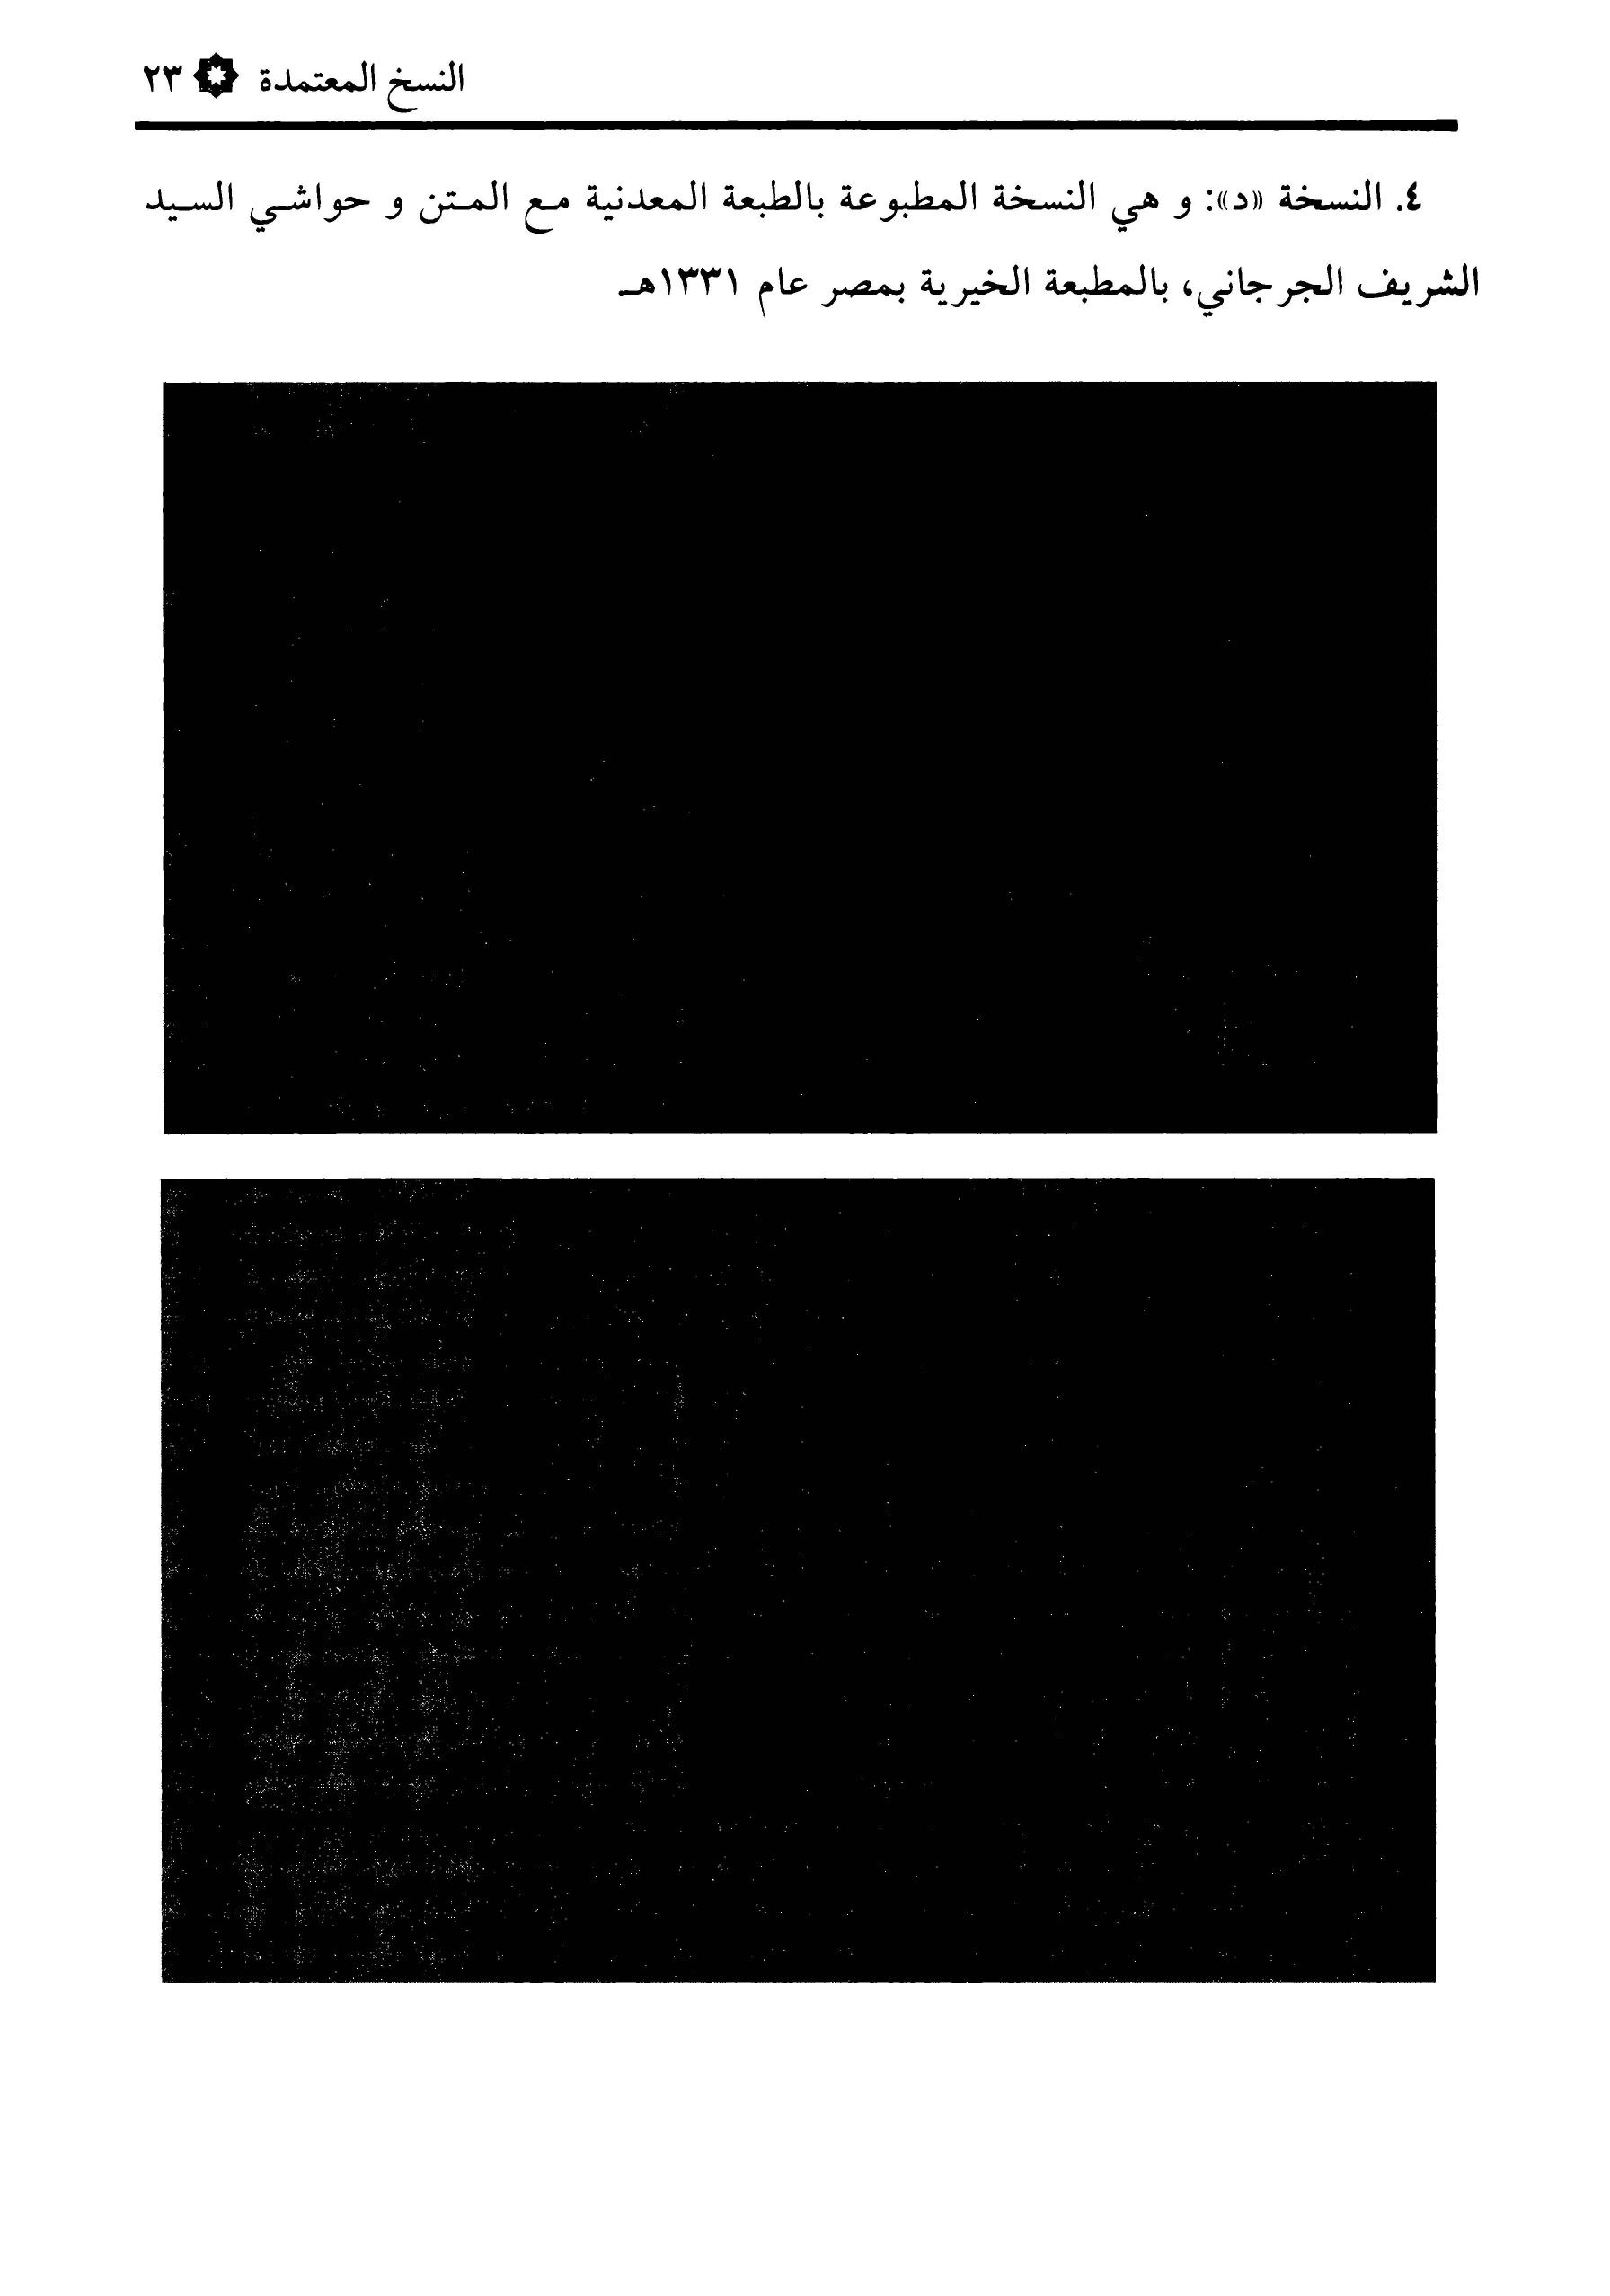 النسخ المعتمدة ٢٣
٤. النسخة «د»: و هي النسخة المطبوعة بالطبعة المعدنية مع المتن و حواشي السيد
الشريف الجرجاني، بالمطبعة الخيرية بمصر عام ١٣٣١هـ